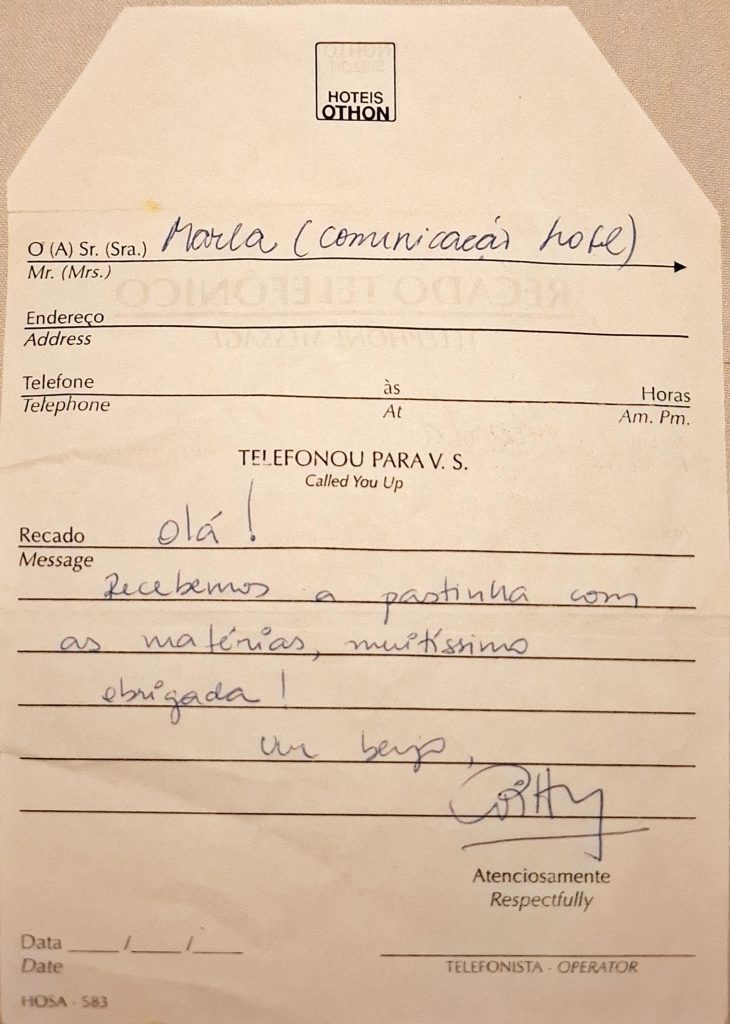 HOTEIS
OTHON
O (A) Sr. (Sra.) Marla (comunicação hotel)
Mr. (Mrs.)
Endereço
Address
Telefone às Horas
Telephone At Am. Pm.
TELEFONOU PARA V. S.
Called You Up
Recado Olá!
Message
Recebemos a pastinha com
as matérias, muitíssimo
obrigada!
Um beijo,
Atenciosamente
Respectfully
Data ____/____/____
Date
TELEFONISTA - OPERATOR
HOSA - 583
RECADO TELEFÔNICO
TELEPHONE MESSAGE